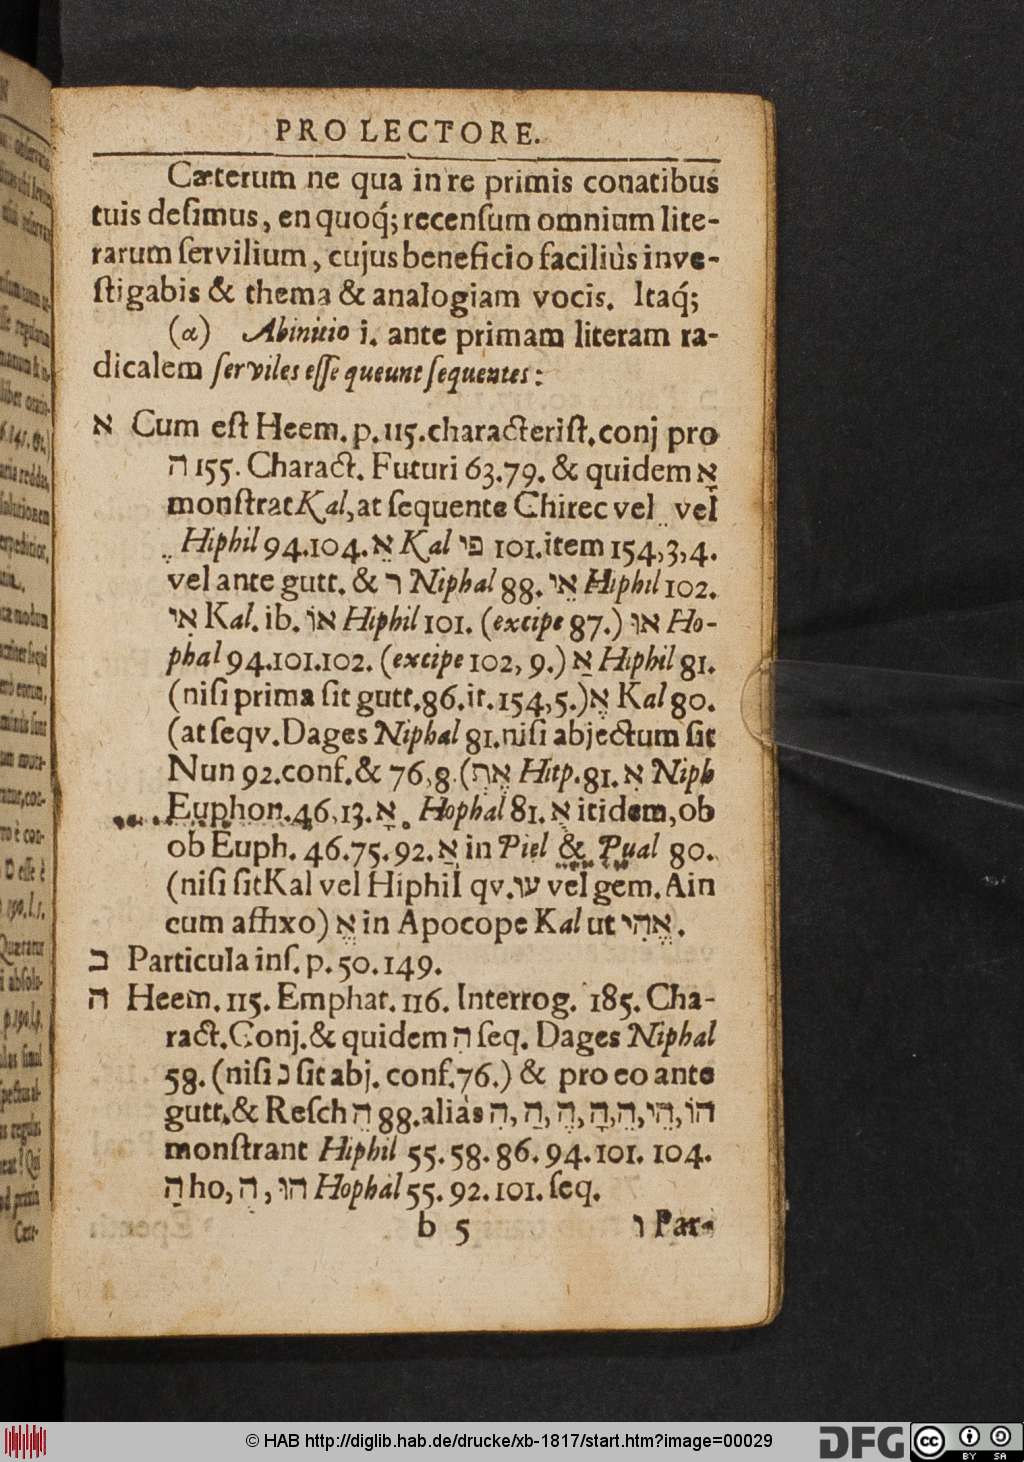 PRO LECTORE.
Cæterum ne qua in re primis conatibus
tuis desimus, en quoq́; recensum omnium lite-
rarum servilium, cujus beneficio faciliùs inve-
stigabis & thema & analogiam vocis. Itaq́;
(α) Abinitio i. ante primam literam ra-
dicalem serviles esse queunt sequentes:
א Cum est Heem. p. 115. characterist. conj pro
ה 155. Charact. Futuri 63.79. & quidem אָ
monstrat Kal, at sequente Chirec vel vel
Hiphil 94.104. אֵ Kal פי 101. item 154,3,4.
vel ante gutt. & ר Niphal 88. אֵי Hiphil 102.
אִי Kal. ib. אוֹ Hiphil 101. (excipe 87.) אוּ Ho-
phal 94.101.102. (excipe 102, 9.) אַ Hiphil 81.
(nisi prima sit gutt. 86. it. 154,5.) אֶ Kal 80.
(at seqv. Dages Niphal 81. nisi abjectum sit
Nun 92. conf. & 76,8. (אֶת Hitp. 81. אִ Niph
Euphon. 46,13. אָ Hophal 81. אֻ itidem, ob
ob Euph. 46.75.92. אֲ in Piel & Pual 80.
(nisi sit Kal vel Hiphil qv. עו vel gem. Ain
cum affixo) אֱ in Apocope Kal ut אֱהִי.
ב Particula ins. p. 50. 149.
ה Heem. 115. Emphat. 116. Interrog. 185. Cha-
ract. Conj. & quidem הִ seq. Dages Niphal
58. (nisi נ sit abj. conf. 76.) & pro eo ante
gutt. & Resch הֵ 88. aliàs הִ, הַ, הֶ, הָ, הֵ, הֵי, הוֹ
monstrant Hiphil 55. 58. 86. 94. 101. 104.
הָ ho, הֻ, הוּ Hophal 55. 92. 101. seq.
b 5 ו Par-
© HAB http://diglib.hab.de/drucke/xb-1817/start.htm?image=00029
DFG cc BY SA